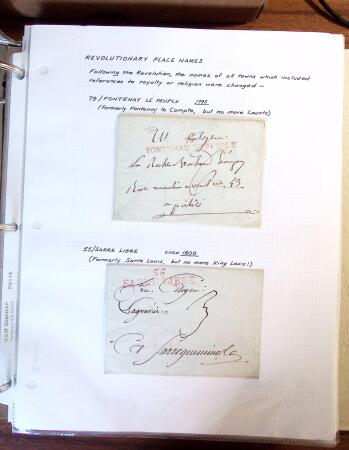 REVOLUTIONARY PLACE NAMES
Following the Revolution, the names of all towns which included
references to royalty or religion were changed —
79/FONTENAY LE PEUPLE 1795
(formerly Fontenay le Compte, but no more Counts)
Au Citoyen
FONTENAY LE PEUPLE
a paris
55/SARRE LIBRE circa 1800
(Formerly Sarre Louis, but no more King Louis!)
55
SARRE LIBRE
Au Citoyen
3
A Sarreguemine